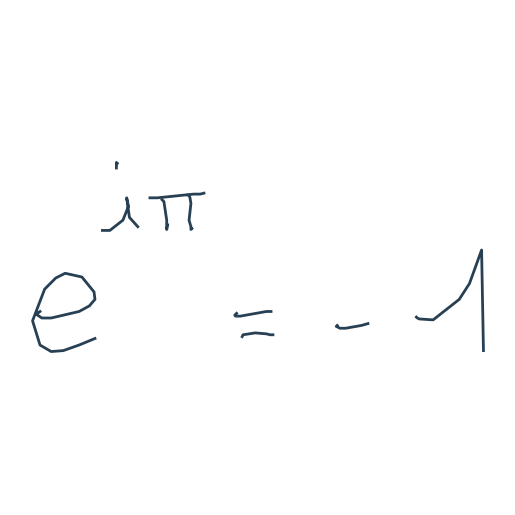 e^{iπ} = -1